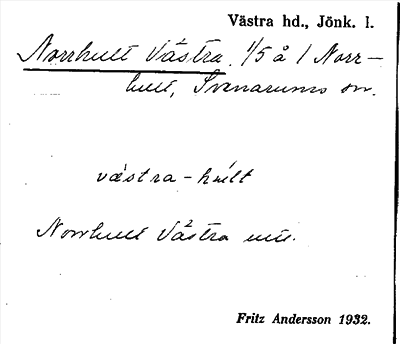 Västra hd., Jönk. l.
Norrhult Västra 1/5 å 1 Norr-
hult, Svenarums sn.
västra-hult
Norrhult Västra
Fritz Andersson 1932.